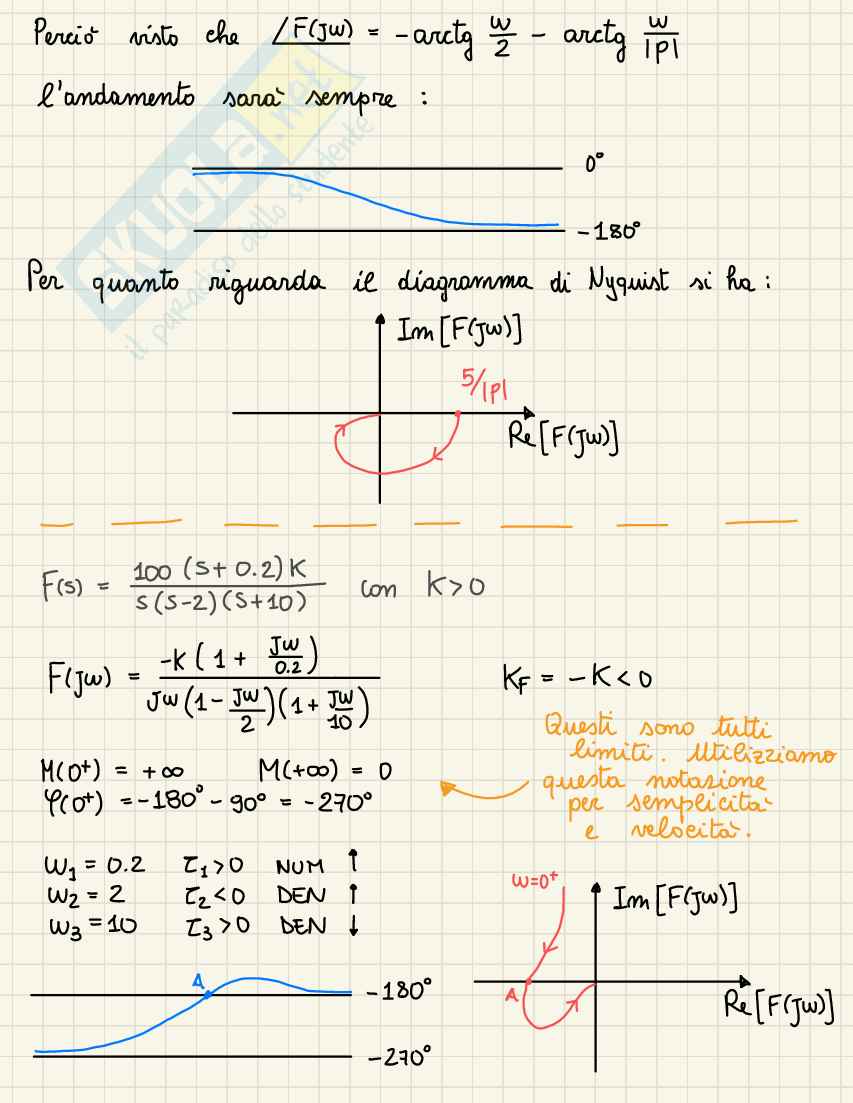 Perciò visto che ∠F(Jω) = -arctg ω/2 - arctg ω/|p|
l'andamento sarà sempre :
SKUOLA.net
il paradiso dello studente
0°
-180°
Per quanto riguarda il diagramma di Nyquist si ha :
Im[F(Jω)]
5/|p|
Re[F(Jω)]
F(s) = 100 (s + 0.2) K / s (s-2) (s+10) con K > 0
F(Jω) = -K (1 + Jω/0.2) / Jω (1 - Jω/2)(1 + Jω/10)
K_F = -K < 0
Questi sono tutti
limiti. Utilizziamo
questa notazione
per semplicità
e velocità.
M(0⁺) = +∞ M(+∞) = 0
φ(0⁺) = -180° - 90° = -270°
ω₁ = 0.2 τ₁ > 0 NUM ↑
ω₂ = 2 τ₂ < 0 DEN ↑
ω₃ = 10 τ₃ > 0 DEN ↓
ω=0⁺
Im[F(Jω)]
A
Re[F(Jω)]
A
-180°
-270°